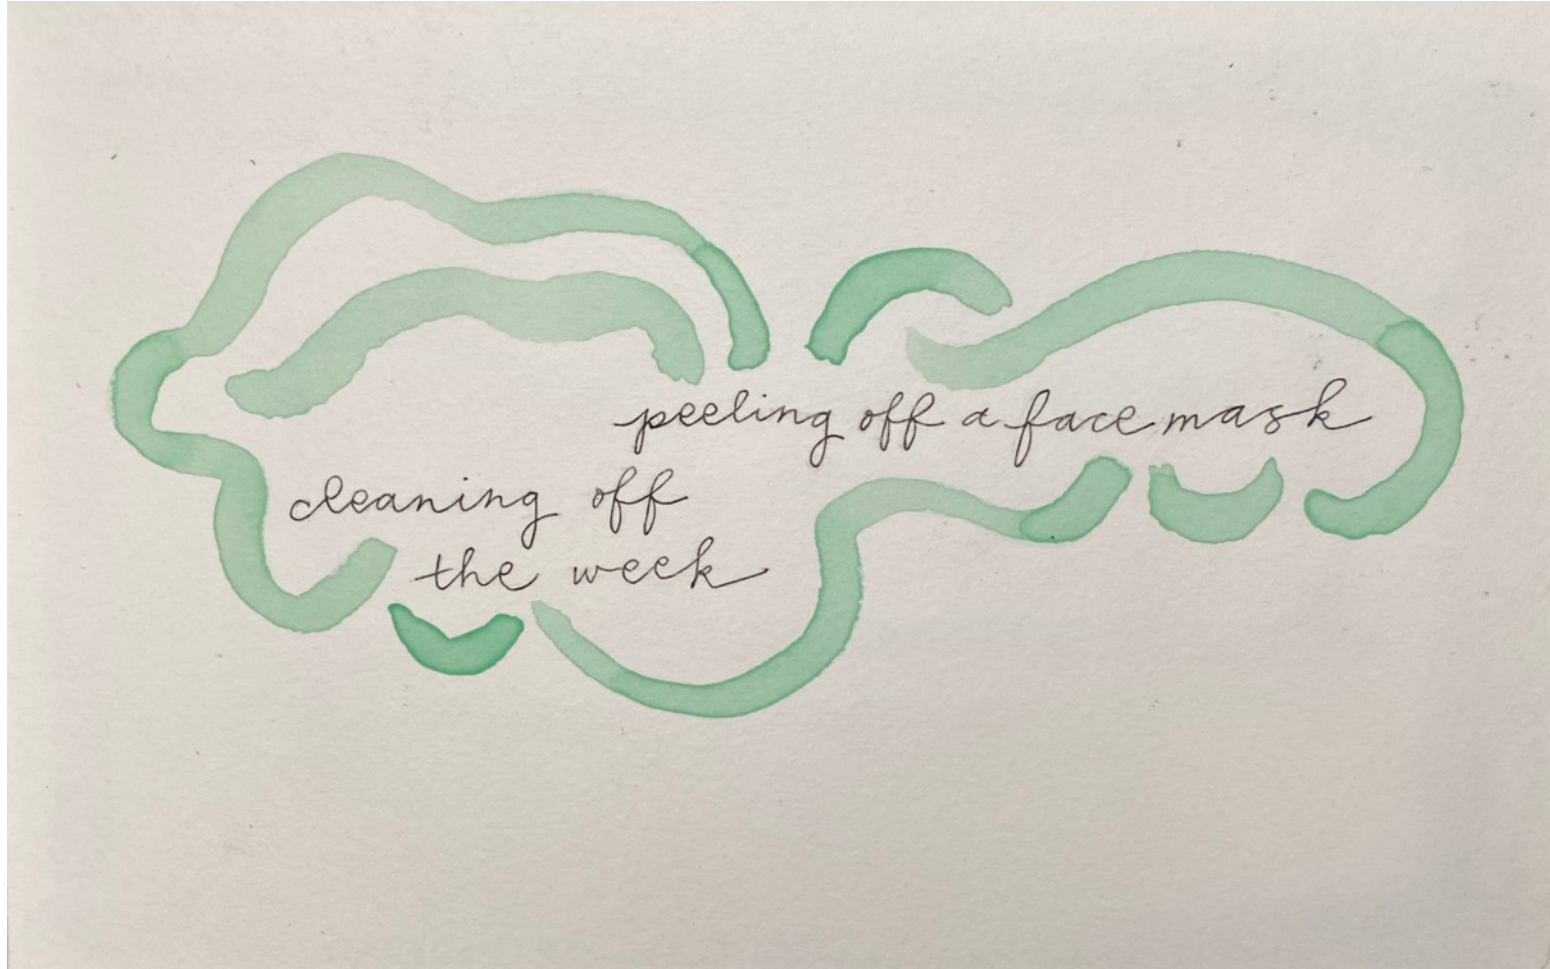 peeling off a face mask
cleaning off
the week